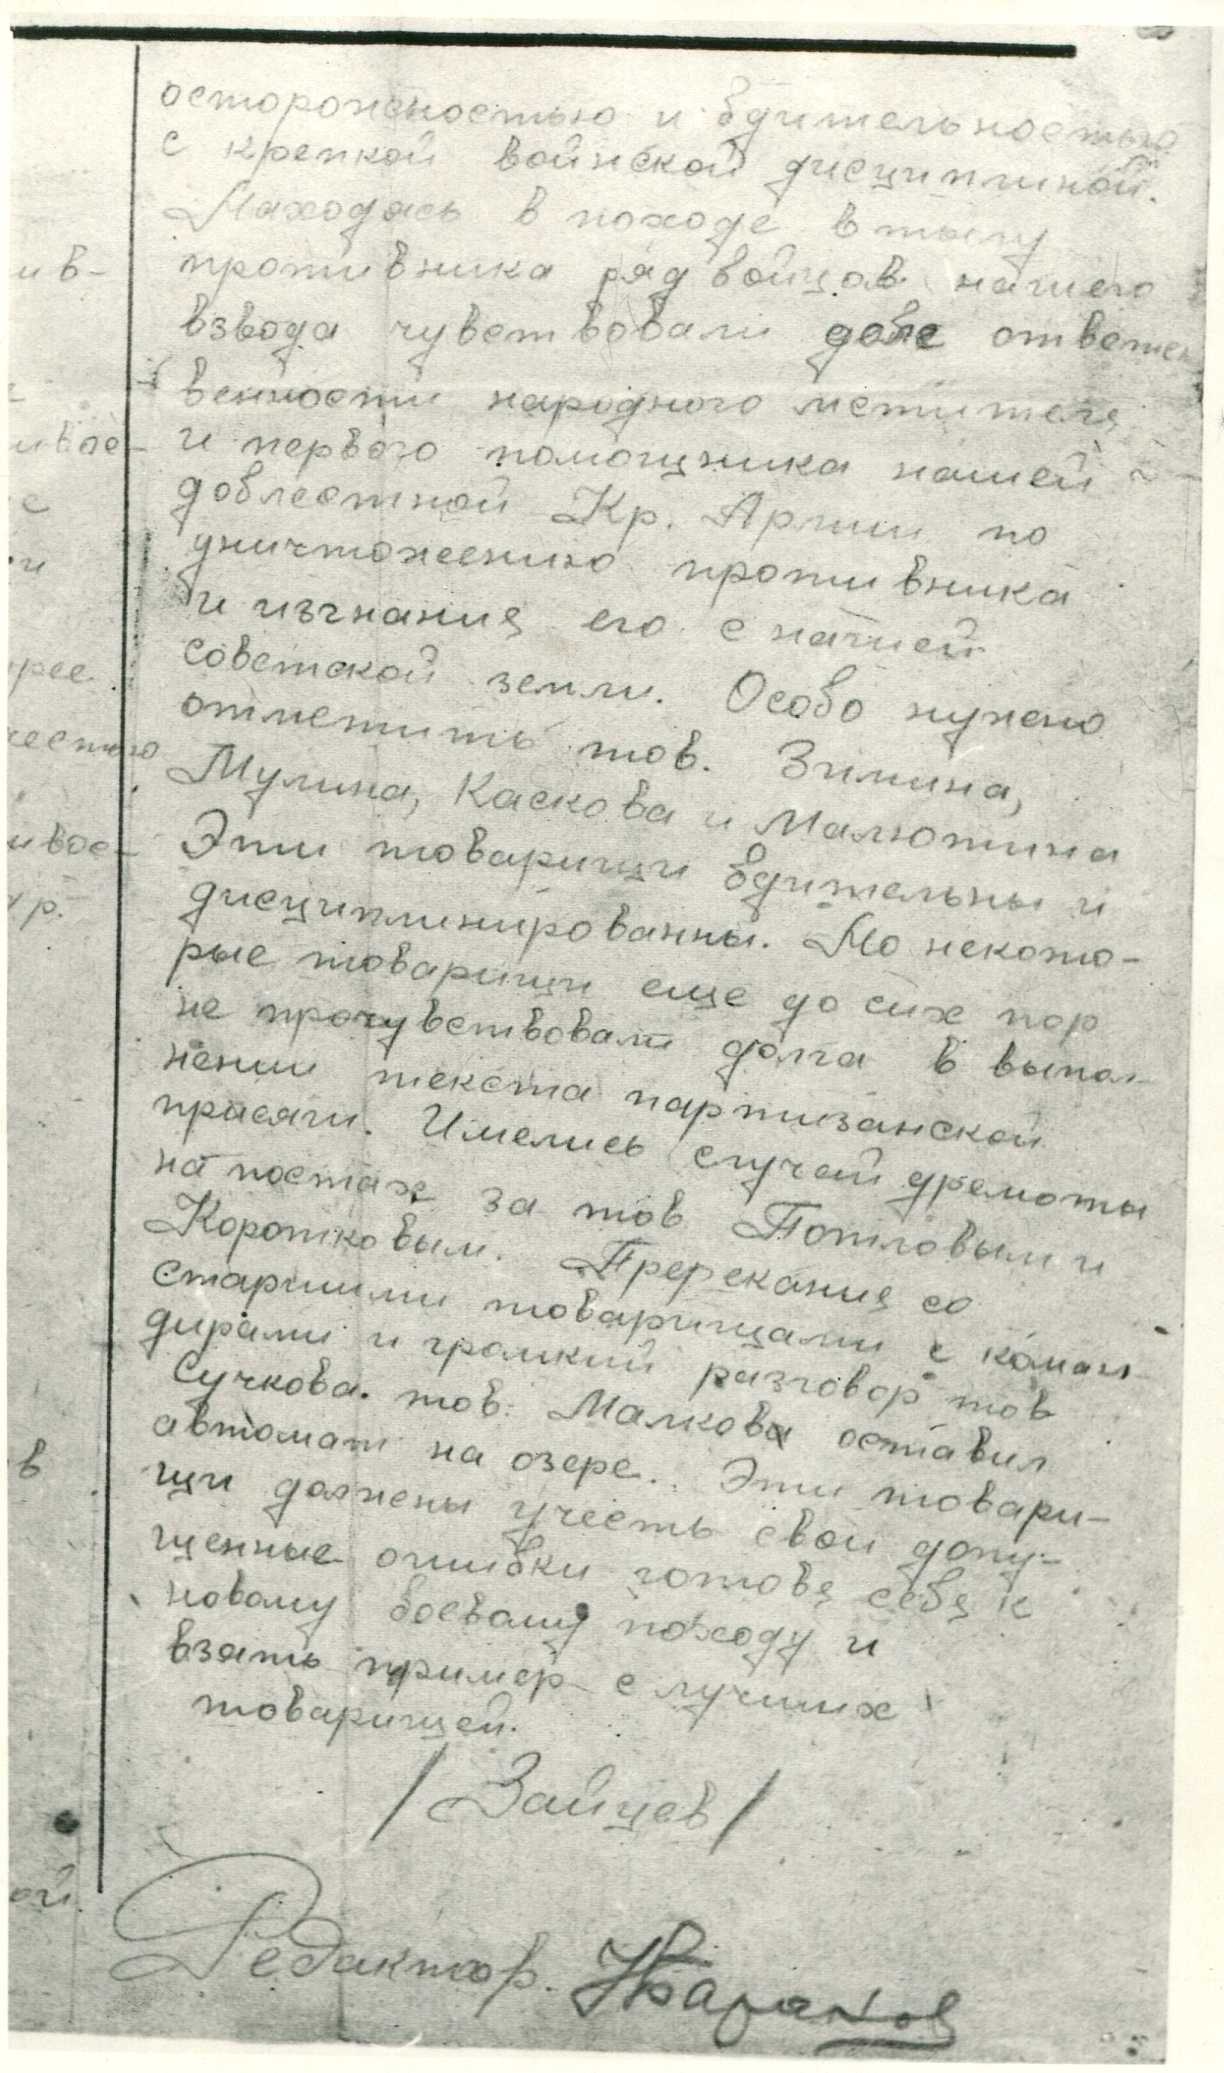 осторожностью и бдительностью
с крепкой воинской дисциплиной.
Находясь в походе в тылу
противника ряд бойцов нашего
взвода чувствовали ответст
венности народного мстителя
и первого помощника нашей
доблестной Кр. Армии по
уничтожению противника
и изгнания его с нашей
советской земли. Особо нужно
отметить тов. Зимина,
Мулина, Каскова и Малютина
Эти товарищи бдительны и
дисциплинированны. Но некото-
рые товарищи еще до сих пор
не прочувствовали долга в выпол-
нении текста партизанской
присяги. Имелись случай дремоты
на постах за тов Потловым и
Коротковым. Пререкания со
старшими товарищами с коман-
дирами и громкий разговор тов
Сучкова. тов. Малкова оставил
автомат на озере. Эти товари-
щи должны учесть свои допу-
щенные ошибки готовя себя к
новому боевому походу и
взять пример с лучших
товарищей.
/Зайцев/
Редактор. Баранов
ив-
ивое-
е
и
рее
честью
ивое-
р.
в
ой.